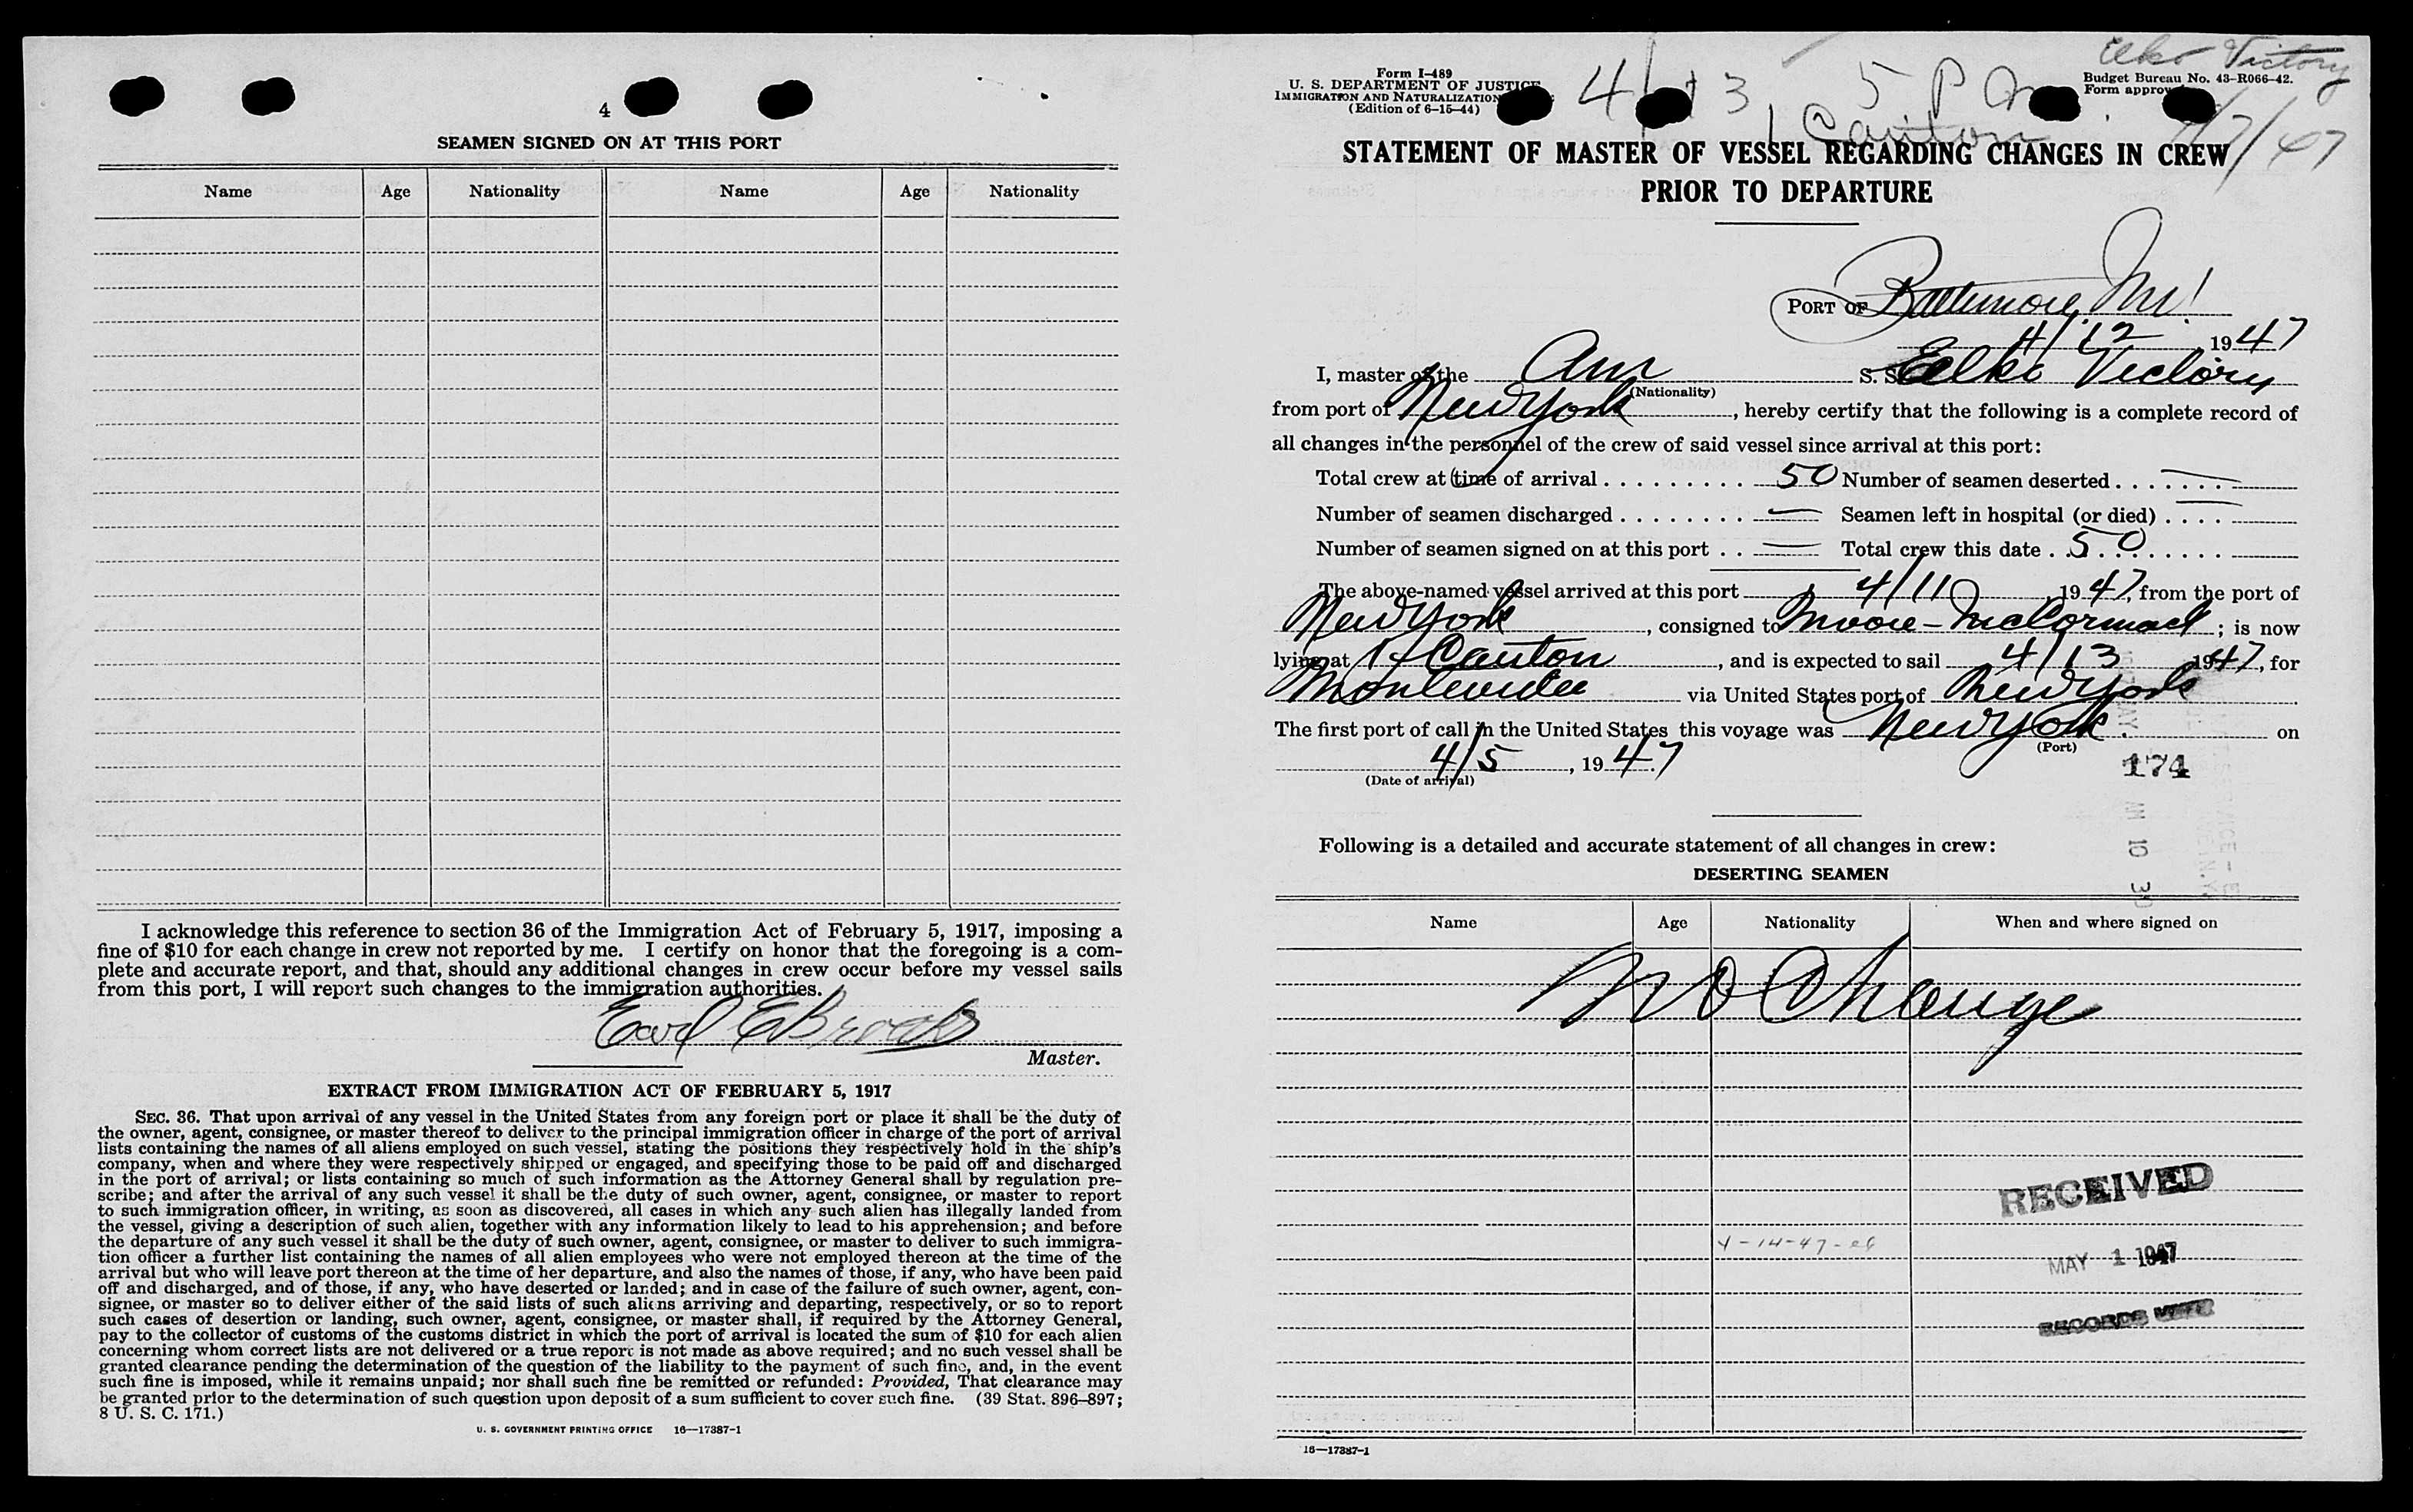 4
SEAMEN SIGNED ON AT THIS PORT
Name Age Nationality Name Age Nationality
I acknowledge this reference to section 36 of the Immigration Act of February 5, 1917, imposing a
fine of $10 for each change in crew not reported by me. I certify on honor that the foregoing is a com-
plete and accurate report, and that, should any additional changes in crew occur before my vessel sails
from this port, I will report such changes to the immigration authorities.
Earl E Brooks
Master.
EXTRACT FROM IMMIGRATION ACT OF FEBRUARY 5, 1917
SEC. 36. That upon arrival of any vessel in the United States from any foreign port or place it shall be the duty of
the owner, agent, consignee, or master thereof to deliver to the principal immigration officer in charge of the port of arrival
lists containing the names of all aliens employed on such vessel, stating the positions they respectively hold in the ship's
company, when and where they were respectively shipped or engaged, and specifying those to be paid off and discharged
in the port of arrival; or lists containing so much of such information as the Attorney General shall by regulation pre-
scribe; and after the arrival of any such vessel it shall be the duty of such owner, agent, consignee, or master to report
to such immigration officer, in writing, as soon as discovered, all cases in which any such alien has illegally landed from
the vessel, giving a description of such alien, together with any information likely to lead to his apprehension; and before
the departure of any such vessel it shall be the duty of such owner, agent, consignee, or master to deliver to such immigra-
tion officer a further list containing the names of all alien employees who were not employed thereon at the time of the
arrival but who will leave port thereon at the time of her departure, and also the names of those, if any, who have been paid
off and discharged, and of those, if any, who have deserted or landed; and in case of the failure of such owner, agent, con-
signee, or master so to deliver either of the said lists of such aliens arriving and departing, respectively, or so to report
such cases of desertion or landing, such owner, agent, consignee, or master shall, if required by the Attorney General,
pay to the collector of customs of the customs district in which the port of arrival is located the sum of $10 for each alien
concerning whom correct lists are not delivered or a true report is not made as above required; and no such vessel shall be
granted clearance pending the determination of the question of the liability to the payment of such fine, and, in the event
such fine is imposed, while it remains unpaid; nor shall such fine be remitted or refunded: Provided, That clearance may
be granted prior to the determination of such question upon deposit of a sum sufficient to cover such fine. (39 Stat. 896–897;
8 U. S. C. 171.)
U. S. GOVERNMENT PRINTING OFFICE 16—17387-1
Elko Victory
Form I-489
U. S. DEPARTMENT OF JUSTICE
IMMIGRATION AND NATURALIZATION
(Edition of 6-15-44)
4/13 5 P M
Canton
Budget Bureau No. 43-R066-42.
Form approv
STATEMENT OF MASTER OF VESSEL REGARDING CHANGES IN CREW
PRIOR TO DEPARTURE
PORT OF Baltimore, Md
4/12, 1947
I, master of the Am S. S. Elko Victory
(Nationality)
from port of New York, hereby certify that the following is a complete record of
all changes in the personnel of the crew of said vessel since arrival at this port:
Total crew at time of arrival . . . . . . . . . 50 Number of seamen deserted . . . . . . . —
Number of seamen discharged . . . . . . . . — Seamen left in hospital (or died) . . . . —
Number of seamen signed on at this port . . — Total crew this date . . 50 . . . . . . .
The above-named vessel arrived at this port 4/11, 1947, from the port of
New York, consigned to Moore-McCormack; is now
lying at Canton, and is expected to sail 4/13 1947, for
Montevideo via United States port of New York
The first port of call in the United States this voyage was New York on
(Port)
4/5, 1947
(Date of arrival)
174
Following is a detailed and accurate statement of all changes in crew:
DESERTING SEAMEN
Name Age Nationality When and where signed on
No Change
RECEIVED
4-14-47
MAY 1 1947
RECORDS
16—17387-1